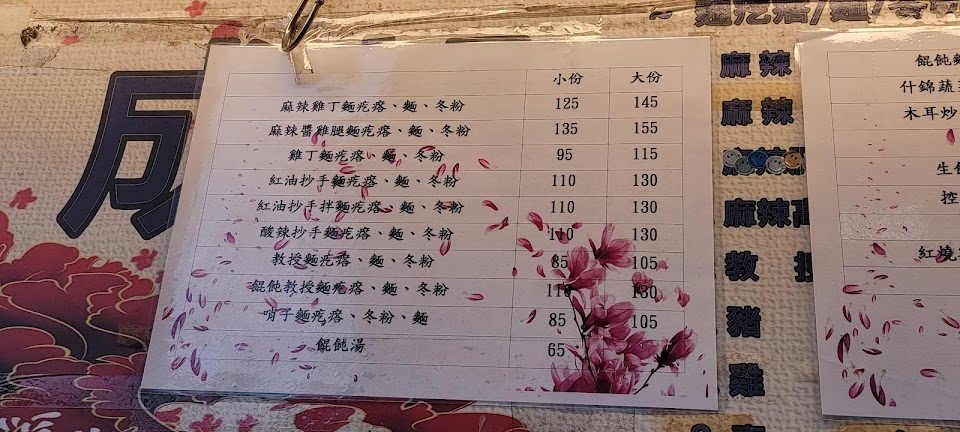 小份 大份
麻辣雞丁麵疙瘩、麵、冬粉 125 145
麻辣醬雞腿麵疙瘩、麵、冬粉 135 155
雞丁麵疙瘩、麵、冬粉 95 115
紅油抄手麵疙瘩、麵、冬粉 110 130
紅油抄手拌麵疙瘩、麵、冬粉 110 130
酸辣抄手麵疙瘩、麵、冬粉 110 130
教授麵疙瘩、麵、冬粉 85 105
餛飩教授麵疙瘩、麵、冬粉 110 130
哨子麵疙瘩、冬粉、麵 85 105
餛飩湯 65
成
麻辣
麻辣
麻辣
教
豬
雞
餛飩
什錦蔬
木耳炒
生
控
紅燒